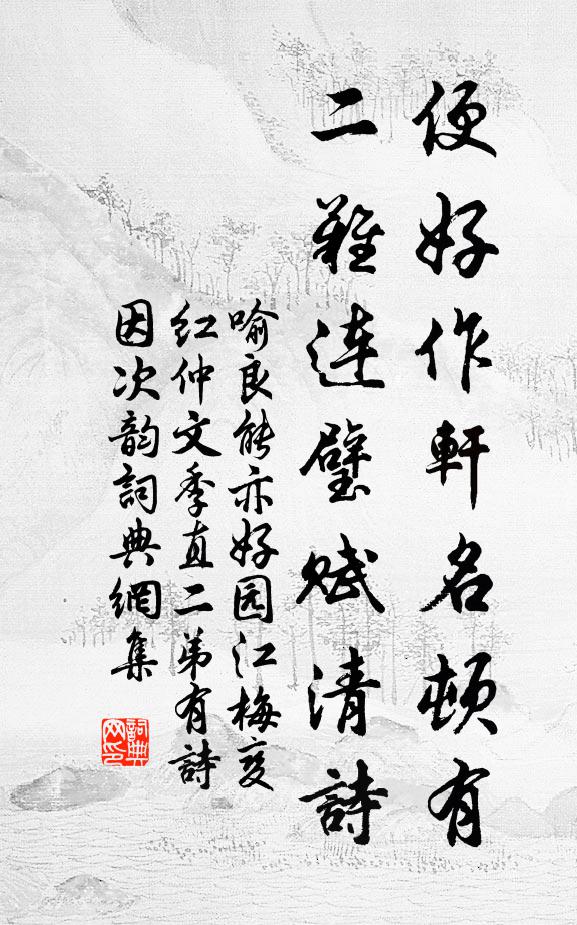 便好作軒名頓有
二難連璧賦清詩
喻良能亦好园江梅变
红仲文季直二弟有詩
因次韵詞典網集
詞典
网印